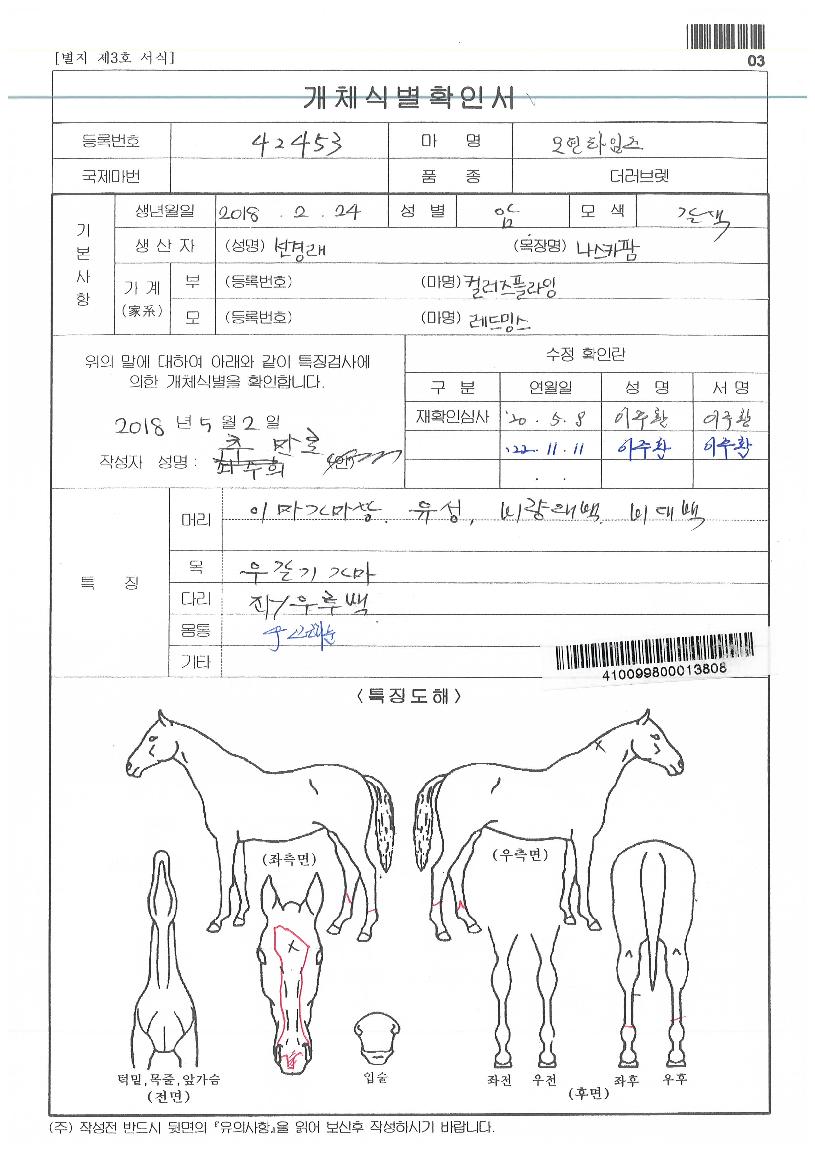 [별지 제3호 서식]
03
개체식별확인서
등록번호 42453 마 명 모먼타임즈
국제마번 품 종 더러브렛
기본사항
생년월일 2018 . 2 . 24 성 별 암 모 색 갈색
생 산 자 (성명) (목장명) 나스카팜
가 계 (家系) 부 (등록번호) (마명) 컬러즈플라잉
모 (등록번호) (마명) 레드밍스
위의 말에 대하여 아래와 같이 특징검사에
의한 개체식별을 확인합니다.
2018 년 5 월 2 일
작성자 성명 : 추 만호
수정 확인란
구 분 연월일 성 명 서 명
재확인심사 '20 . 5 . 8 이주환 이주환
'22 . 11 . 11 이주환 이주환
. .
특 징
머리 이마가마상, 유성, 비량태백, 비대백
목 우갈기가마
다리 좌/우후백
몸통
기타
410099800013808
<특징도해>
(좌측면) (우측면)
턱밑,목줄,앞가슴
(전면)
입술
좌전 우전 좌후 우후
(후면)
(주) 작성전 반드시 뒷면의 『유의사항』을 읽어 보신후 작성하시기 바랍니다.